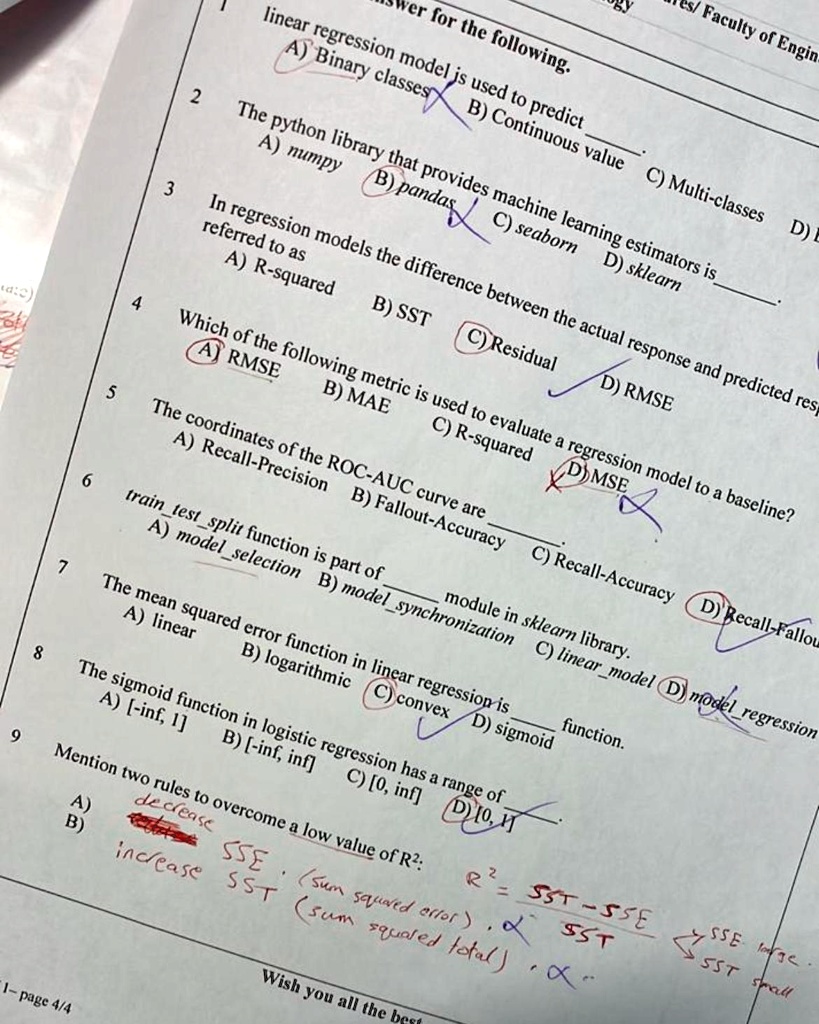 ogy
res/ Faculty of Engin
swer for the following.
1 linear regression model is used to predict ______.
A) Binary classes B) Continuous value C) Multi-classes D)
2 The python library that provides machine learning estimators is ______.
A) numpy B) pandas C) seaborn D) sklearn
3 In regression models the difference between the actual response and predicted res
referred to as
A) R-squared B) SST C) Residual D) RMSE
4 Which of the following metric is used to evaluate a regression model to a baseline?
A) RMSE B) MAE C) R-squared D) MSE
5 The coordinates of the ROC-AUC curve are ______.
A) Recall-Precision B) Fallout-Accuracy C) Recall-Accuracy D) Recall-Fallou
6 train_test_split function is part of ______ module in sklearn library.
A) model_selection B) model_synchronization C) linear_model D) model_regression
7 The mean squared error function in linear regression is ______ function.
A) linear B) logarithmic C) convex D) sigmoid
8 The sigmoid function in logistic regression has a range of ______.
A) [-inf, 1] B) [-inf, inf] C) [0, inf] D) [0, 1]
9 Mention two rules to overcome a low value of R²:
A) decrease SSE. (sum squared error).
B) increase SST (sum squared total).
R² = SST - SSE
SST
SSE large.
SST small
Wish you all the best
1– page 4/4